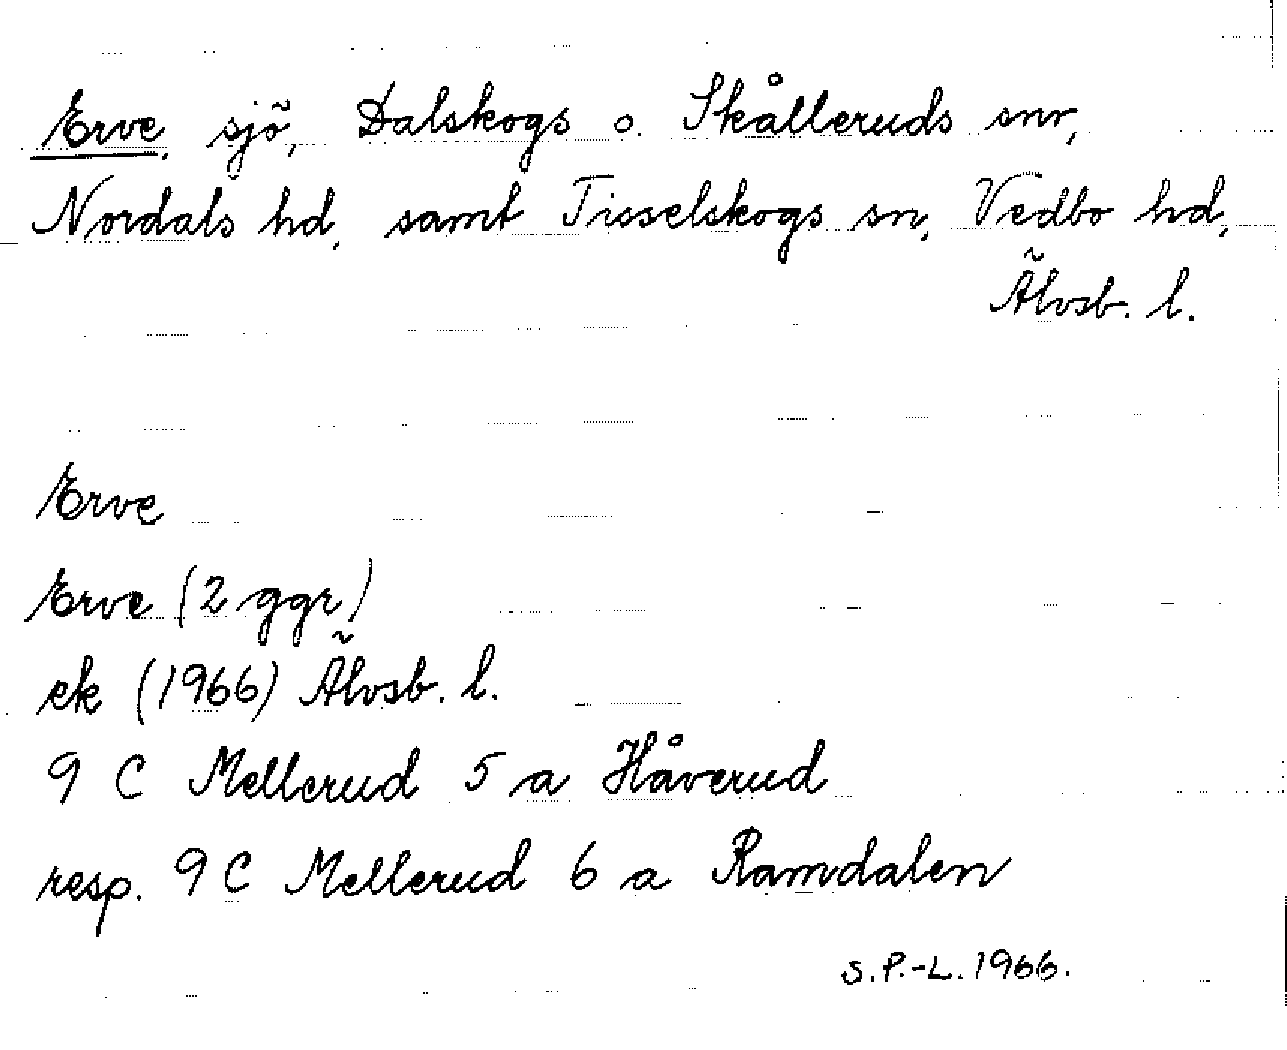 Erve, sjö, Dalskogs o. Skålleruds snr,
Nordals hd, samt Tisselskogs sn, Vedbo hd,
Älvsb. l.
Erve
Erve (2 ggr)
ek (1966) Älvsb. l.
9 C Mellerud 5 a Håverud
resp. 9 C Mellerud 6 a Ramdalen
S.P.-L. 1966.